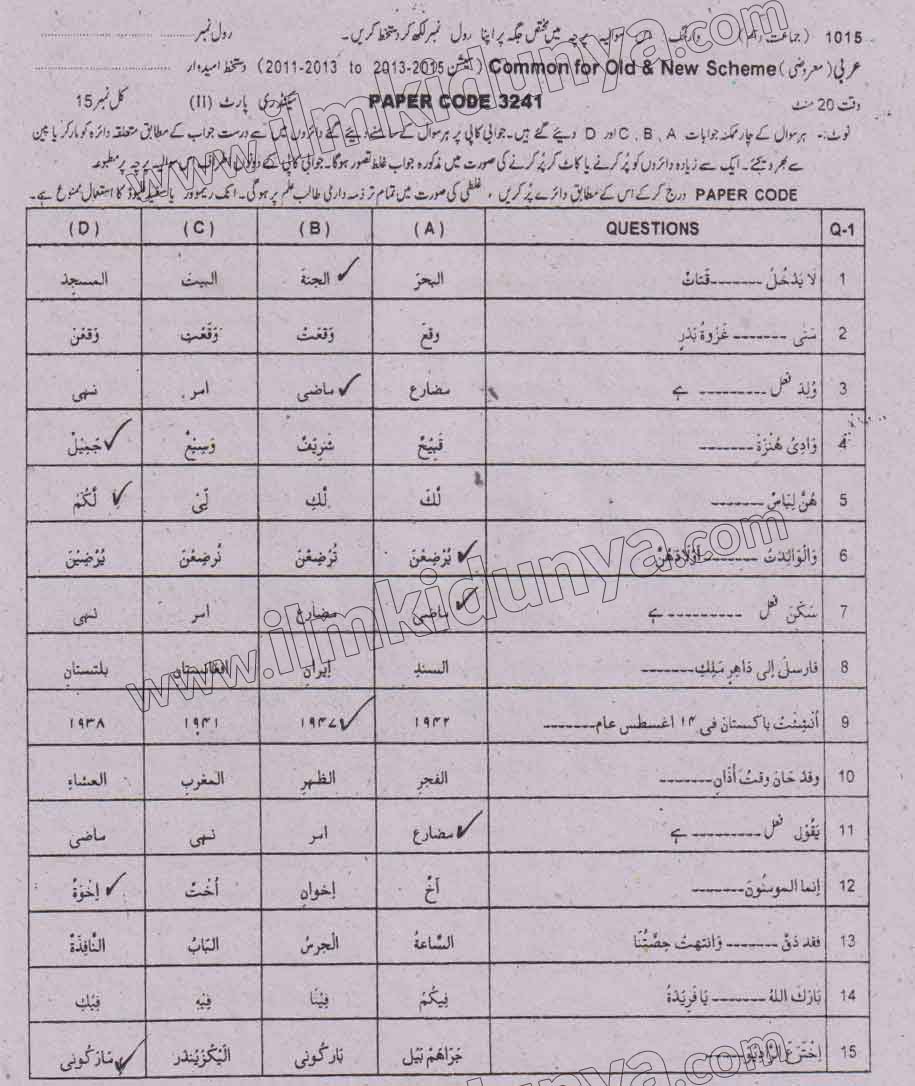 1015 (جماعت دہم) وارننگ۔ اس سوالیہ پرچہ میں مختص جگہ پر اپنا رول نمبر لکھ کر دستخط کریں۔ رول نمبر
عربی (معروضی) Common for Old & New Scheme (سیشن 2013-2015 to 2011-2013) دستخط امیدوار
وقت 20 منٹ PAPER CODE 3241 سیکنڈری پارٹ (II) کل نمبر 15
نوٹ:- ہر سوال کے چار ممکنہ جوابات C, B, A اور D دیئے گئے ہیں۔ جوابی کاپی پر ہر سوال کے سامنے دیئے گئے دائروں میں سے درست جواب کے مطابق متعلقہ دائرہ کو مارکر یا پین
سے بھر دیجئے۔ ایک سے زیادہ دائروں کو پُر کرنے یا کاٹ کر پُر کرنے کی صورت میں مذکورہ جواب غلط تصور ہوگا۔ جوابی کاپی کے دونوں اطراف اس سوالیہ پرچہ پر مطبوعہ
PAPER CODE درج کر کے اس کے مطابق دائرے پُر کریں ، غلطی کی صورت میں تمام تر ذمہ داری طالب علم پر ہوگی۔ انک ریموور یا سفید فلیوڈ کا استعمال ممنوع ہے۔
Q-1 QUESTIONS (A) (B) (C) (D)
1 لَا يَدْخُلُ ------- قَتَاتٌ البحرَ الجنةَ البيتَ المسجدَ
2 مَتٰى ------- غَزْوَةُ بَدْرٍ وقعَ وَقعتْ وَقَعْتِ وَقعْنَ
3 وُلِدَ فعل --------- ہے مضارع ماضی امر نہی
4 وَادِىْ هُنْزَةَ ------- قَبِيْحٌ شَرِيْفٌ وَسِيْعٌ جَمِيْلٌ
5 هُنَّ لِبَاسٌ ------- لَّكَ لَّكِ لِّىْ لَّكُمْ
6 وَالْوَالِدٰتُ ------- اَوْلَادَهُنَّ يُرْضِعْنَ تُرضِعْنَ نُرضِعْنَ يُرْضِيْنَ
7 سَكَنَ فعل --------- ہے ماضی مضارع امر نہی
8 فارسلَ اِلى دَاهِرٍ مَلِكِ ------- السندِ اِيرانِ افغانستانِ بلتستانِ
9 اُنْشِئَتْ باكستان فى ۱۴ اغسطس عام ------- ۱۹۴۲ ۱۹۴۷ ۱۹۴۱ ۱۹۳۸
10 وقد حَانَ وقتُ أَذَانِ ------- الفجرِ الظهرِ المغربِ العشاءِ
11 يَقُوْل فعل --------- ہے مضارع امر نہی ماضی
12 اِنما المومنُونَ ------- اَخٌ اِخوانٌ اُخْتٌ اِخْوَةٌ
13 فقد دَقَّ ------- وَانتهتْ حِصَّتُنَا السَّاعةُ الْجرسُ البَابُ النَّافِذَةُ
14 بَارَكَ اللهُ ------- يَا فَرِيْدَةُ فِيْكُمْ فِيْنَا فِيْهِ فِيْكِ
15 اِخْتَرَعَ الرَّادِيُوْ ------- جَرَاهَمْ بَيْل بَاركُونى اَلَيْكْزِيْنْدَر مَارْكُونى
www.ilmkidunya.com
www.ilmkidunya.com